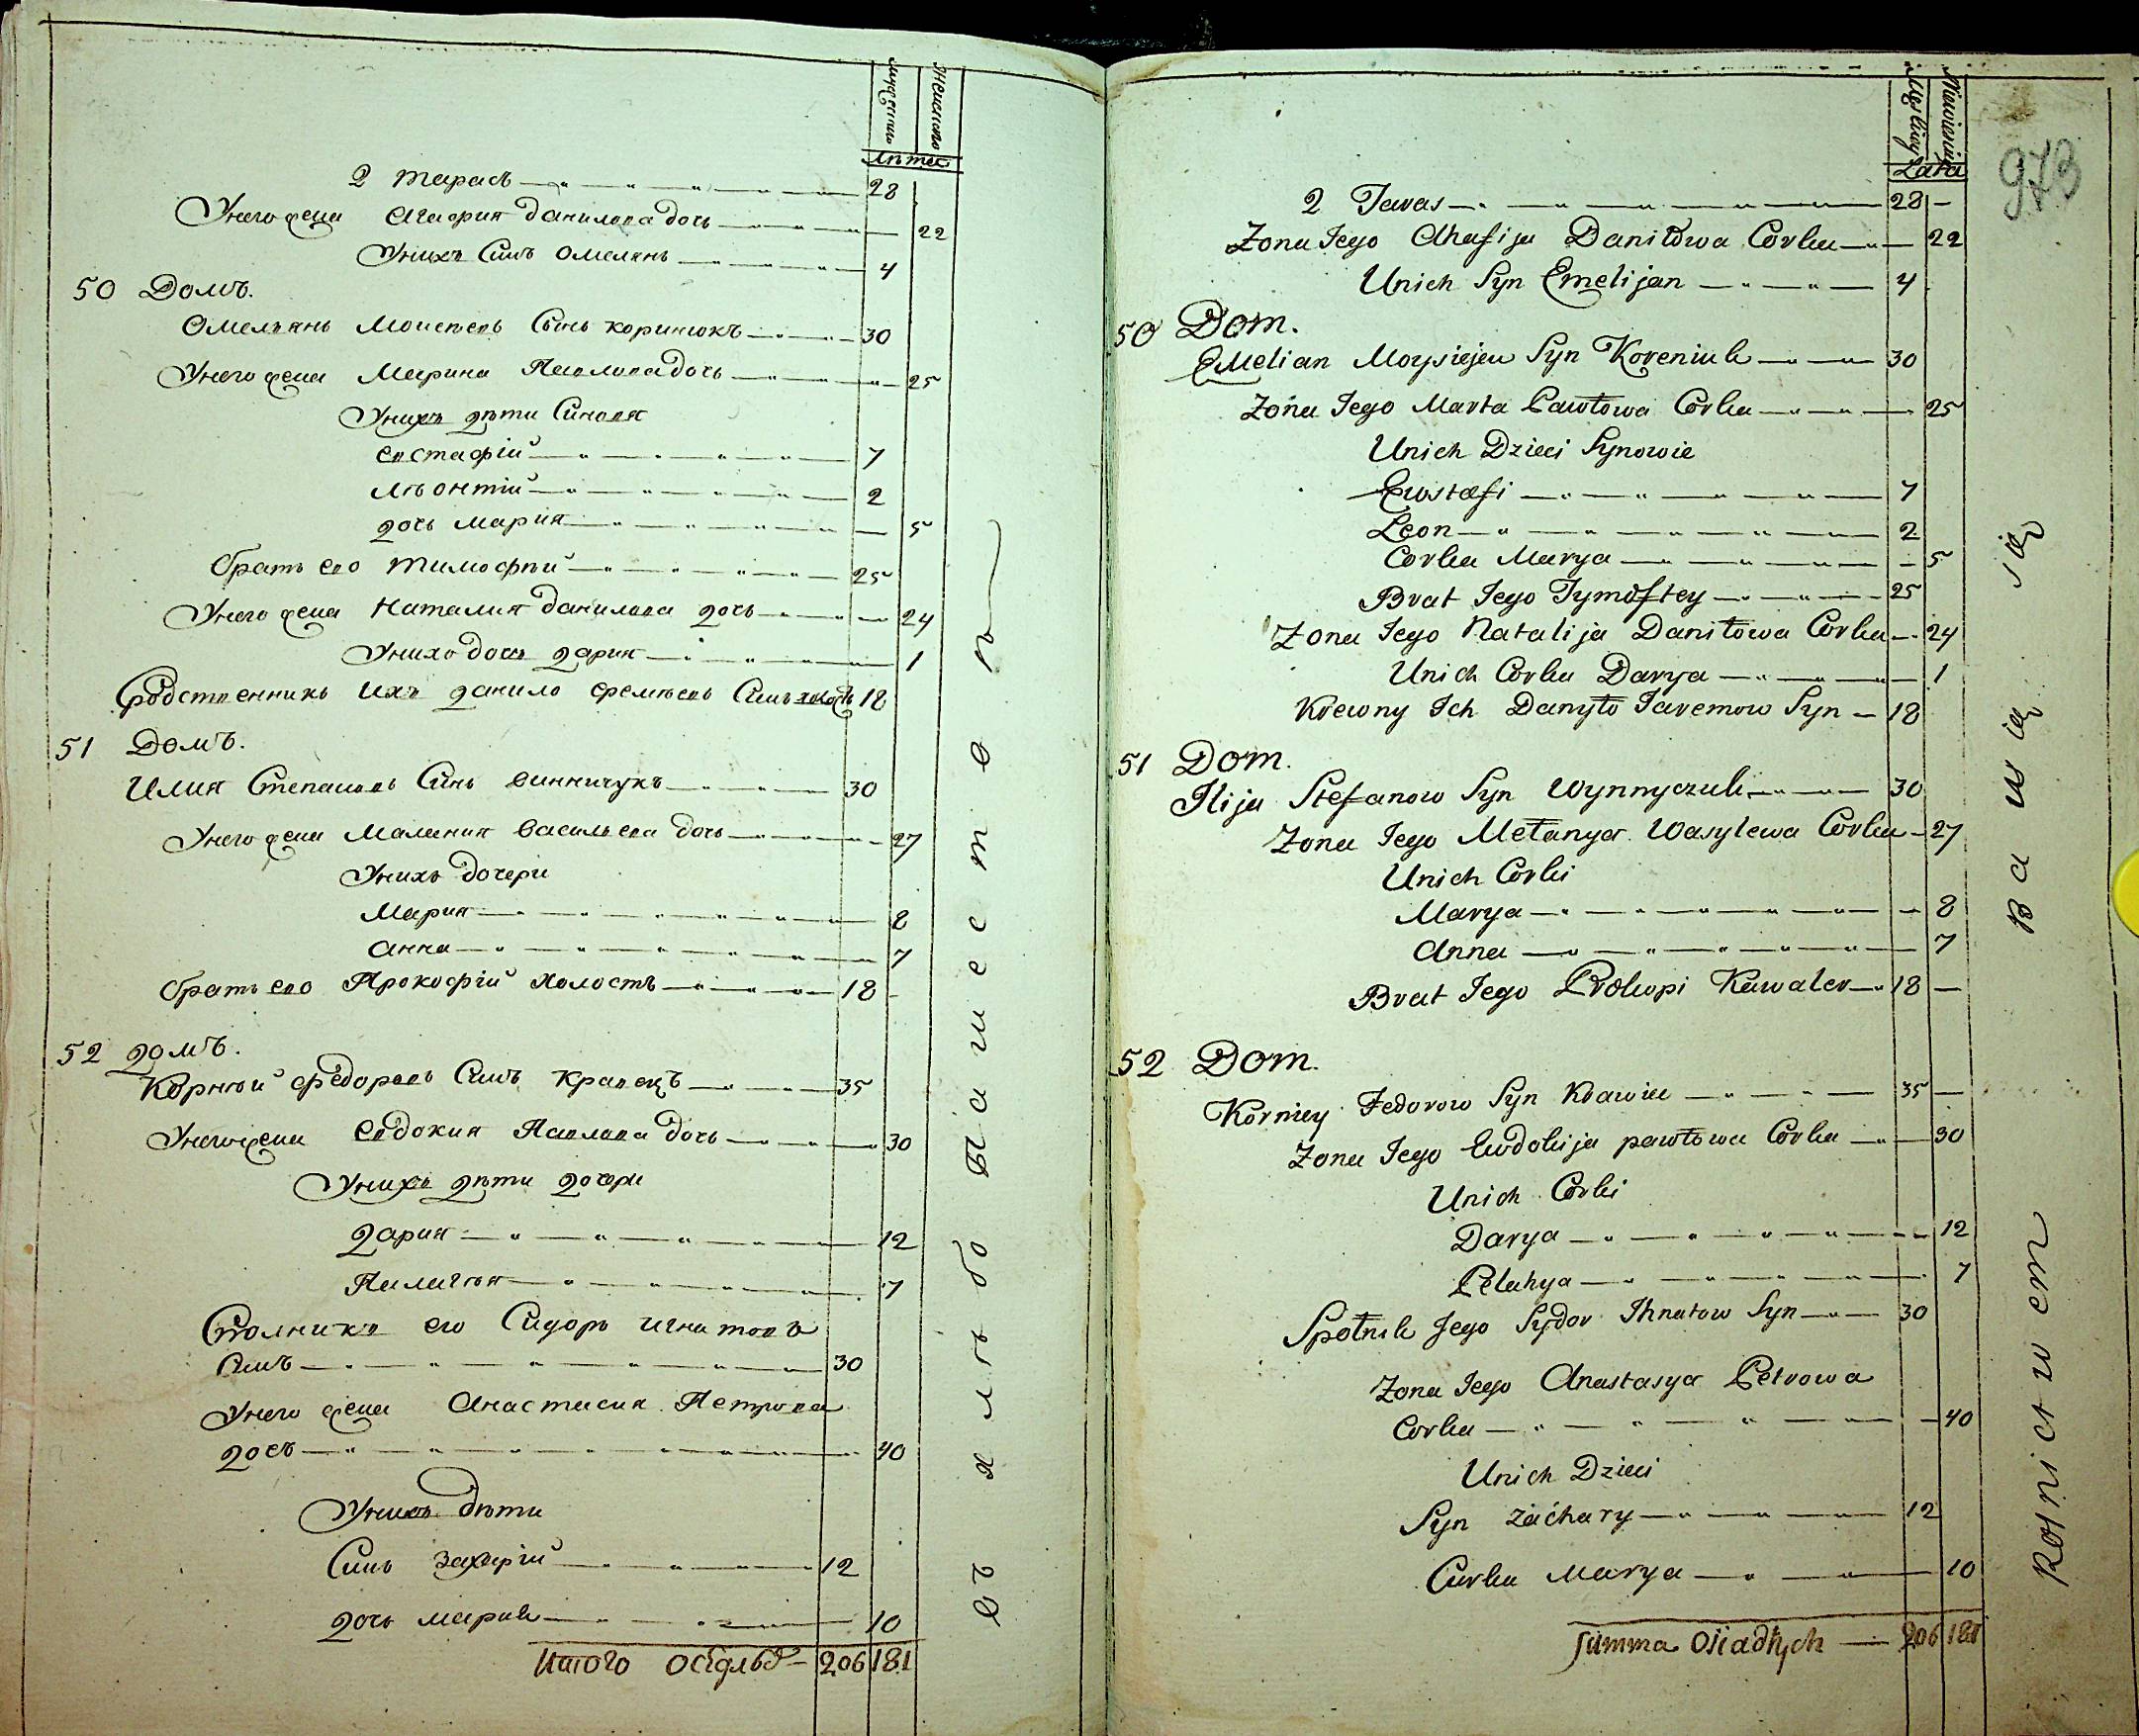 мужеска женска
лѣта
2 Тарасъ 28
У него жена Агафия Данилова дочь 22
У нихъ Синъ Омелянъ 4
50 Домъ.
Омельянъ Моисѣевъ Сынъ коринюкъ 30
У него жена Марина Павлова дочь 25
У нихъ дѣти Синовя
Евстафiй 7
Лѣонтiй 2
дочь Мария 5
братъ ево Тимофѣй 25
У него жена Наталия Данилова дочь 24
У нихъ дочь дария 1
Сродственникъ ихъ данило еремѣевъ Синъ 18
51 Домъ.
Илия Степановъ Синъ винничукъ 30
У него жена Малания Васильева дочь 27
У нихъ дочери
Мария 8
Анна 7
братъ ево Прокофiй холостъ 18
52 домъ.
Корнѣй федоровъ Синъ кравецъ 35
У него жена Евдокия Павлова дочь 30
У нихъ дѣти дочери
дария 12
Палагѣя 7
Сполникъ его Сидоръ игнатовъ
Синъ 30
У него жена Анастасия Петрова
дочъ 40
У нихъ дѣти
Синъ захарiй 12
дочь мария 10
Итого осѣдлых 206 181
Męskiey Niewieskiey
Lata
973
2 Taras 28
Zona Iego Ahafija Daniłowa Corka 22
Unich Syn Emelijan 4
50 Dom.
EMelian Moysiejew Syn Koreniuk 30
Zona Iego Marta Pawłowa Corka 25
Unich Dzieci Synowie
Ewstafi 7
Leon 2
Corka Marya 5
Brat Iego Tymoftey 25
Zona Iego Natalija Daniłowa Corka 24
Unich Corka Darya 1
Krewny Ich Danyło Jaremow Syn 18
51 Dom.
Ilija Stefanow Syn Wynnyczuk 30
Zona Iego Mełanya Wasylewa Corka 27
Unich Corki
Marya 8
Anna 7
Brat Iego Prokopi Kawaler 18
52 Dom.
Korniey Fedorow Syn Krawiec 35
Zona Iego Ewdokija pawłowa Corka 30
Unich Corki
Darya 12
Pelahya 7
Społnik Jego Sydor Ihnatow Syn 30
Zona Iego Anastasya Petrowa
Corka 40
Unich Dzieci
Syn zachary 12
Curka Marya 10
Summa Osiadłych 206 181